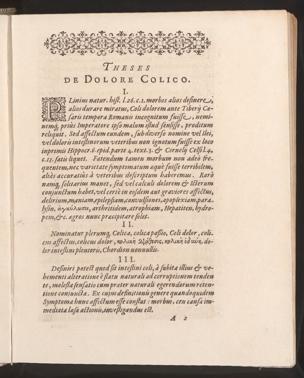 THESES
DE DOLORE COLICO.
I.
PLinius natur. hist. l.26.c.1. morbos alios desinere,
alios durare miratus, Coli dolorem ante Tiberij Cæ-
saris tempora Romanis incognitum fuisse, nemi-
nemq́, priùs Imperatore ipso malum istud sensisse, proditum
reliquit. Sed affectum eundem, sub diverso nomine vel ilei,
vel doloris intestinorum veteribus non ignotum fuisse ex loco
inprimis Hippocr. 6. epid. parte 4. text. 3. & Cornelij Celsi l.4.
c.13. satis liquet. Fatendum tamen morbum non adeò fre-
quentem, nec varietate symptomatum æquè fuisse terribilem,
aliàs accuratiùs à veteribus descriptum haberemus. Rarò
namq, solitarius manet, sed vel calculi dolorem & Icterum
conjunctum habet, vel certè in ejusdem aut graviores affectus,
delirium, maniam, epilepsiam, convulsiones, apoplexiam, para-
lysin, arthritidem, atrophiam, Hepatitem, hydro-
pem, &c. ægros nunc præcipitare solet.
II.
Nominatur plerumq, Colica, colica passio, Coli dolor, coli-
cus affectus, colicus dolor, do-
lor intestini plenioris, Chordion nonnullis.
III.
Definiri potest quod sit intestini coli, à subita illius & ve-
hementi alteratione è statu naturali ad corruptionem tenden-
te, molesta sensatio cum præter naturali egerendorum reten-
tione conjuncta. Ex cujus definitionis genere quandoquidem
Symptoma hunc affectum esse constat: morbus, ceu causa im-
mediata læsæ actionis, investigandus est.
A 2